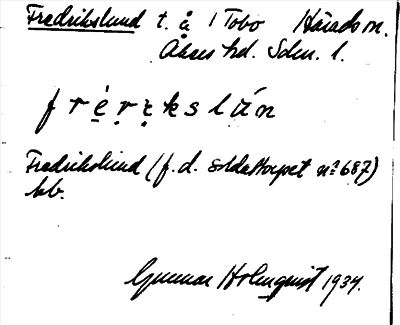 Fredrikslund t. å 1 Tobo Härads m.
Åkers hd. Sdm. l.
f r è̩ r̩ ẹ k s l ú n
Fredrikslund (f.d. soldattorpet nº 687)
kb.
Gunnar Holmquist 1934.